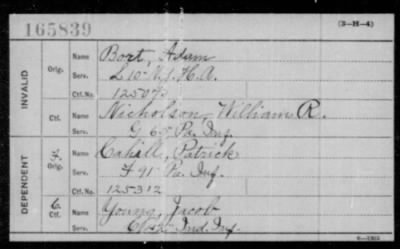 165839
(3-H-4)
INVALID
Orig.
Name Bort, Adam
Serv. L 10 N.Y. H.A.
Ctf. No.
Ctf.
Name Nicholson, William R.
Serv. G Pa. Inf.
DEPENDENT
Orig.
Name Cahill, Patrick
Serv. F 91 Pa. Inf.
Ctf. No. 125312
Ctf.
Name Young, Jacob
Serv. Ind. Inf.